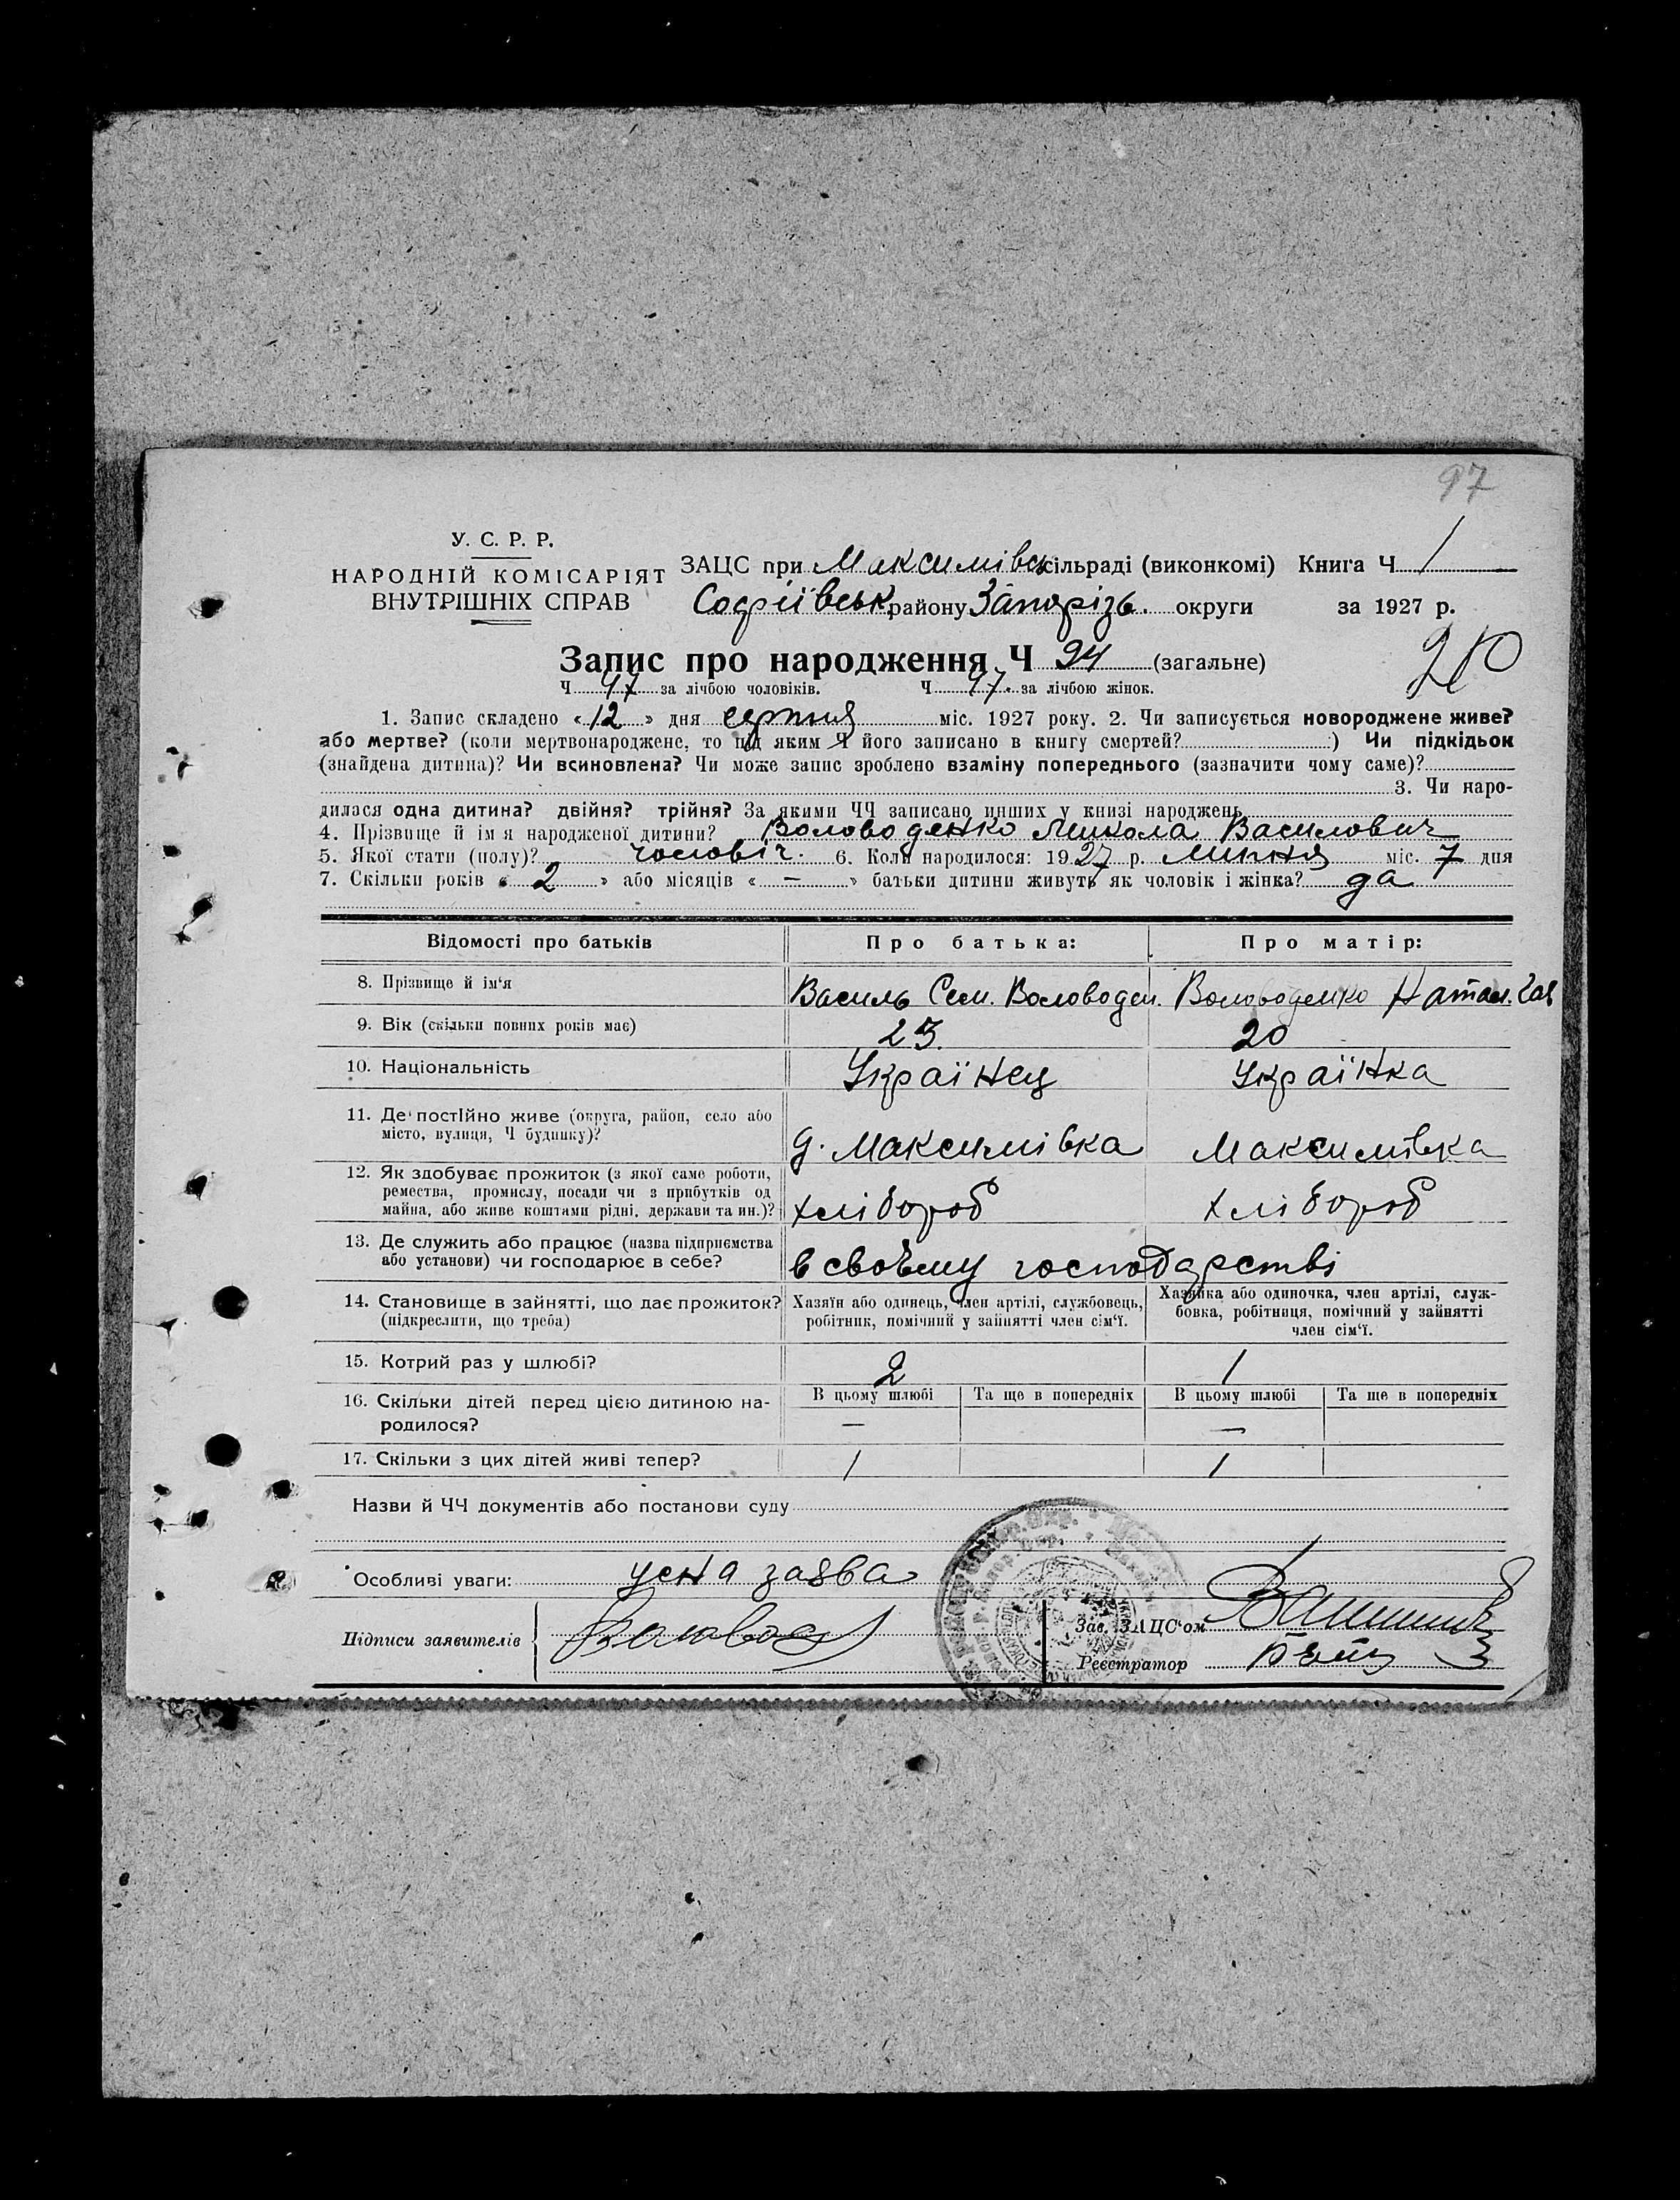 97
У. С. Р. Р.
НАРОДНІЙ КОМІСАРІЯТ
ВНУТРІШНІХ СПРАВ
ЗАЦС при Максимівськ сільраді (виконкомі) Книга Ч 1
Софіївськ району Запорізь. округи за 1927 р.
Запис про народження Ч 94 (загальне)
Ч 47 за лічбою чоловіків. Ч 47 за лічбою жінок.
1. Запис складено « 12 » дня серпня міс. 1927 року. 2. Чи записується новороджене живе?
або мертве? (коли мертвонароджене, то під яким Ч його записано в книгу смертей? ) Чи підкідьок
(знайдена дитина)? Чи всиновлена? Чи може запис зроблено взаміну попереднього (зазначити чому саме)?
3. Чи наро-
дилася одна дитина? двійня? трійня? За якими ЧЧ записано инших у книзі народжень
4. Прізвище й ім'я народженої дитини? Володенко Микола Василович
5. Якої стати (полу)? чоловіч. 6. Коли народилося: 1927 р. липня міс. 7 дня
7. Скільки років « 2 » або місяців « — » батьки дитини живуть як чоловік і жінка? да
Відомості про батьків Про батька: Про матір:
8. Прізвище й ім'я Василь Сем. Володен. Наталі.
9. Вік (скільки повних років має) 23. 20
10. Національність Українец Українка
11. Де постійно живе (округа, район, село або
місто, вулиця, Ч будинку)? д. Максимівка Максимівка
12. Як здобуває прожиток (з якої саме роботи,
ремества, промислу, посади чи з прибутків од
майна, або живе коштами рідні, держави та ин.)? хлібороб хлібороб
13. Де служить або працює (назва підприємства
або установи) чи господарює в себе? в своєму господарстві
14. Становище в зайнятті, що дає прожиток?
(підкреслити, що треба)
Хазяїн або одинець, член артілі, службовець,
робітник, помічний у зайнятті член сім'ї.
Хазяйка або одиночка, член артілі, служ-
бовка, робітниця, помічний у зайнятті
член сім'ї.
15. Котрий раз у шлюбі? 2 1
16. Скільки дітей перед цією дитиною на-
родилося?
В цьому шлюбі Та ще в попередніх В цьому шлюбі Та ще в попередніх
— —
17. Скільки з цих дітей живі тепер? 1 1
Назви й ЧЧ документів або постанови суду
Особливі уваги: усна заява
Підписи заявителів
Зав. ЗАЦС'ом
Реєстратор